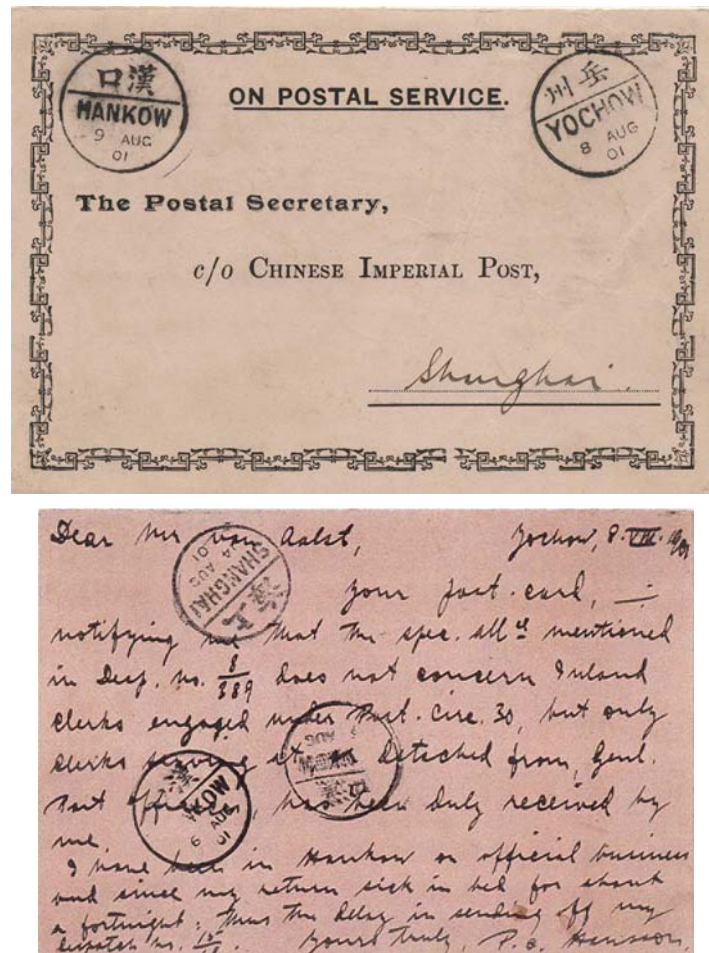 口漢
HANKOW
9 AUG
01
ON POSTAL SERVICE.
州岳
YOCHOW
8 AUG
01
The Postal Secretary,
c/o CHINESE IMPERIAL POST,
Shanghai.
Dear Mr van Aalst,
Yochow, 8. VIII. 1901
SHANGHAI
AUG
01
your post-card,
notifying me that the spec. allce mentioned
in Desp. no. 8/389 does not concern Inland
clerks engaged under Post. Circ. 30, but only
clerks serving at or detached from, Genl.
Post offices, has been duly received by
me.
KOW
AUG
01
AUG
I have been in Hankow on official business
and since my return sick in bed for about
a fortnight; thus the delay in sending off my
despatch no.
Yours truly, P. o. Hansson.